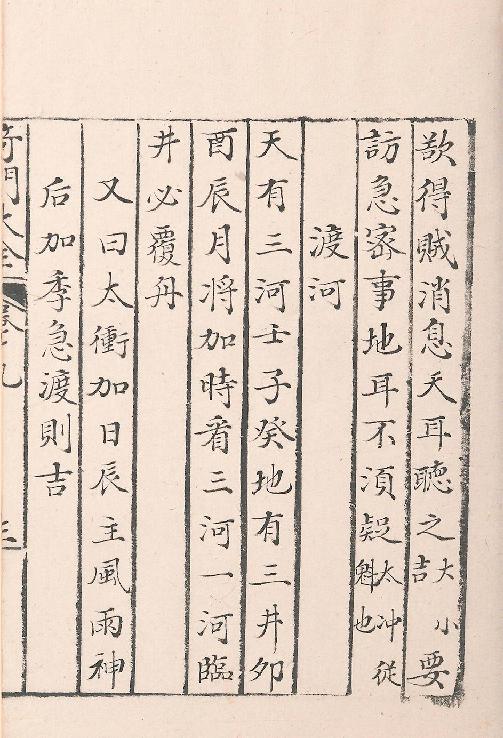 欲得賊消息天耳聽之大吉小要
訪急密事地耳不須疑太冲從魁也
渡河
天有三河壬子癸地有三井夘
酉辰月将加時看三河一河臨
井必覆舟
又曰太衝加日辰主風雨神
后加季急渡則吉
奇門大全 卷十九 三